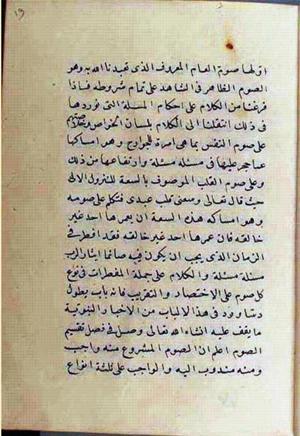 اولها صوم العام المعروف الذي تعبدنا الله به وهو
الصوم الظاهر في الشاهد على تمام شروطه فاذا
فرغنا من الكلام على احكام المسئلة التي نوردها
في ذلك انتقلنا الى الكلام بلسان الخواص وخلاصتهم
على صوم النفس بما هي امرة للجوارح وهو امساكها
عما حجر عليها في مسئلة مسئلة وارتفاعها عن ذلك
وعلى صوم القلب الموصوف بالسعة للنزول الالهي
حيث قال تعالى وسعني قلب عبدي فنتكلم على صومه
وهو امساكه هذه السعة ان يعمرها احد غير
خالقه فان عمرها احد غير خالقه فقد افطر في
الزمان الذي يجب ان يكون فيه صائما ايثارا لربه
مسئلة مسئلة والكلام على جملة المفطرات في نوع
كل صوم على الاختصار والتقريب فانه باب يطول
وسنورد في هذا الباب من الاخبار النبوية
ما يقف عليه انشاء الله تعالى وصل في فصل تقسيم
الصوم اعلم ان الصوم المشروع منه واجب
ومنه مندوب اليه والواجب على ثلثة انواع